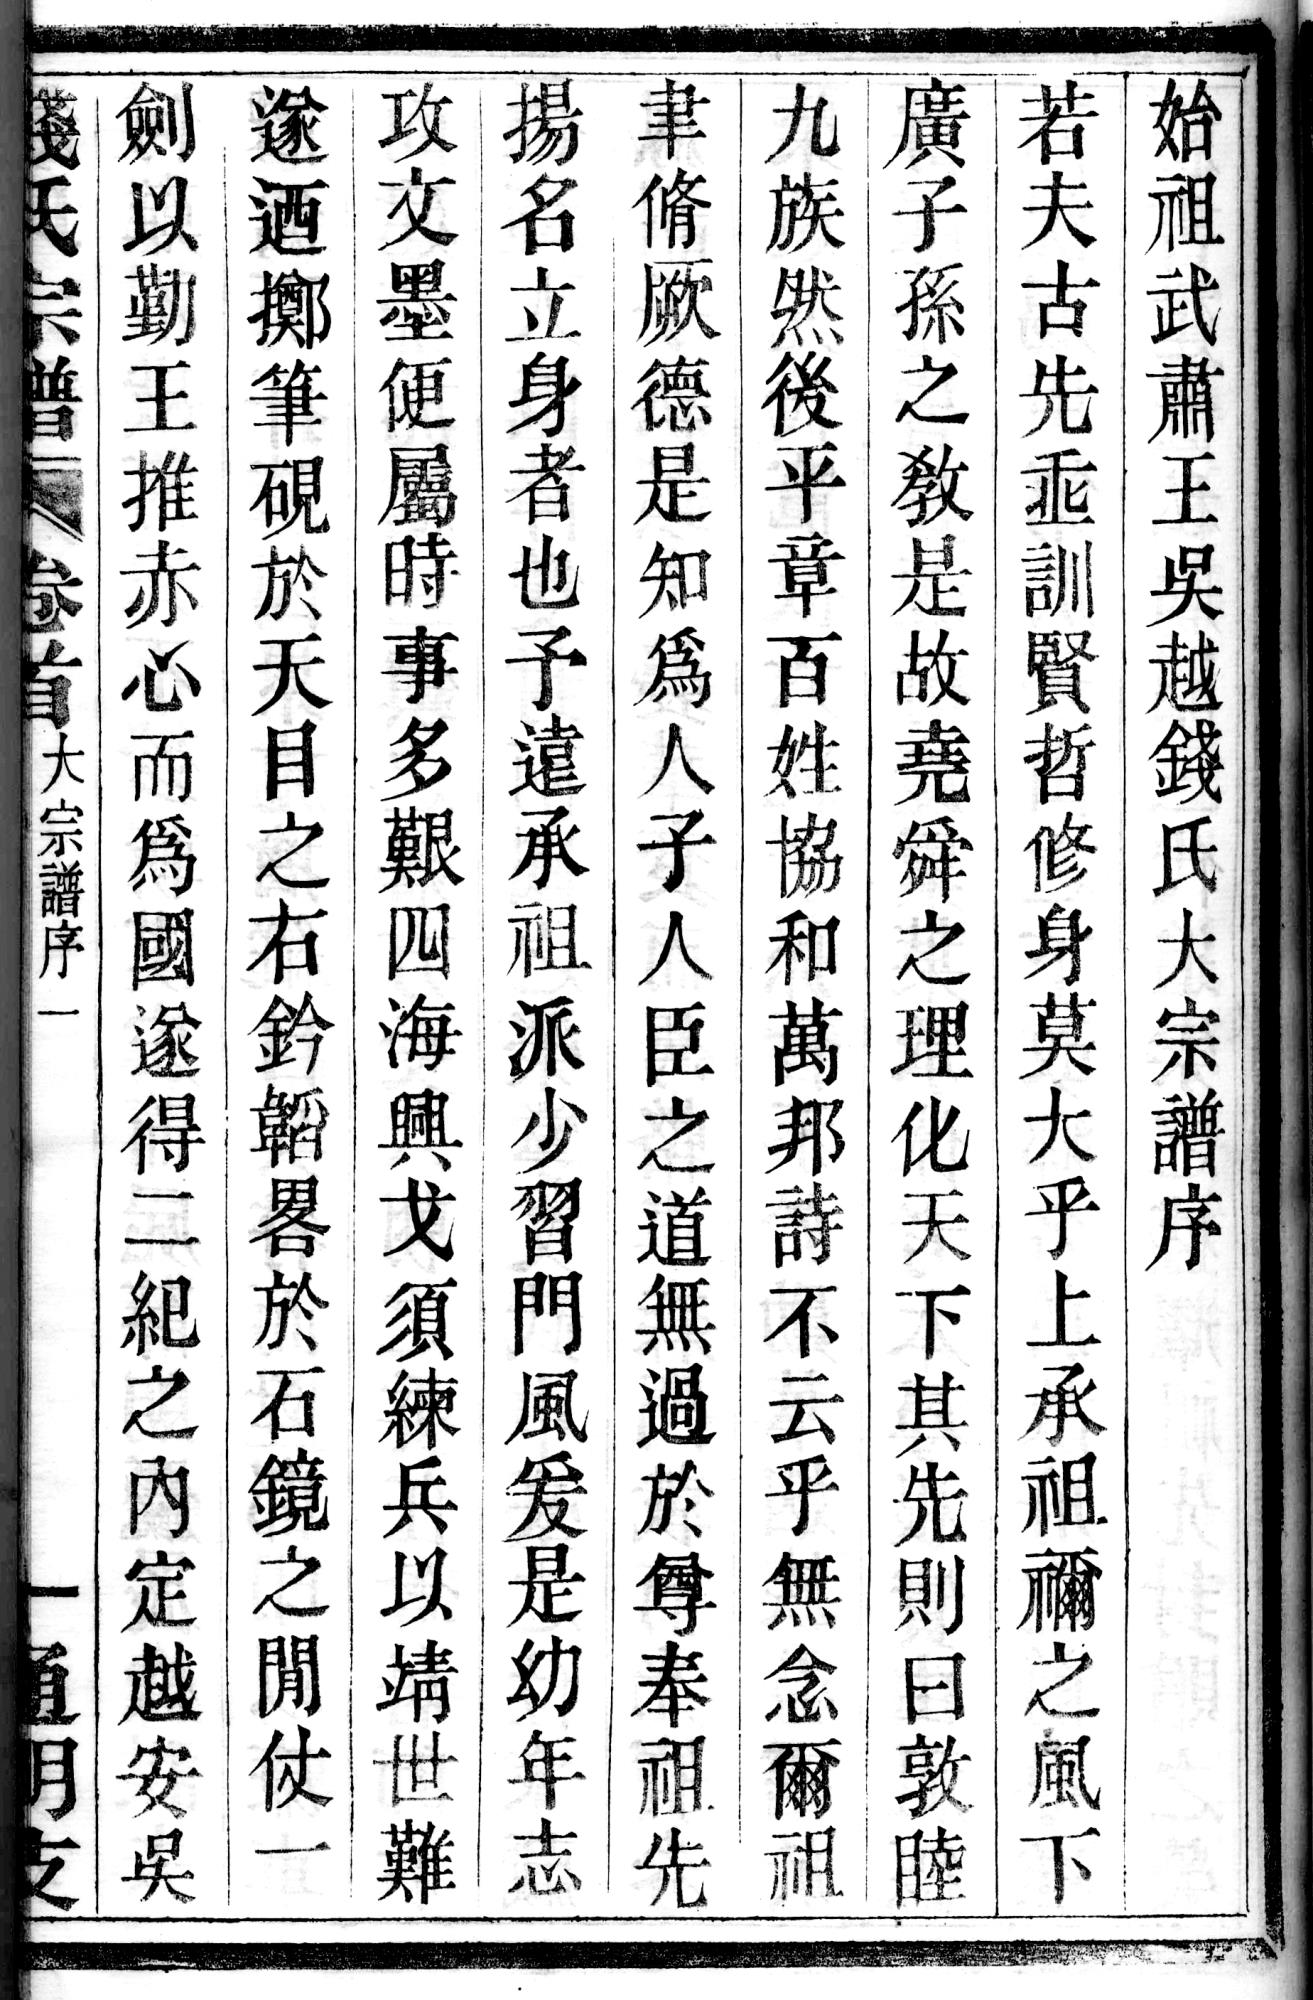 始祖武肅王吳越錢氏大宗譜序
若夫古先垂訓賢哲修身莫大乎上承祖禰之風下
廣子孫之教是故堯舜之理化天下其先則曰敦睦
九族然後平章百姓協和萬邦詩不云乎無念爾祖
聿脩厥德是知爲人子人臣之道無過於尊奉祖先
揚名立身者也予遠承祖派少習門風爰是幼年志
攻文墨便屬時事多艱四海興戈須練兵以靖世難
遂迺擲筆硯於天目之右鈐韜畧於石鏡之閒仗一
劍以勤王推赤心而爲國遂得二紀之內定越安吳
錢氏宗譜 卷首 大宗譜序一 一 通明支